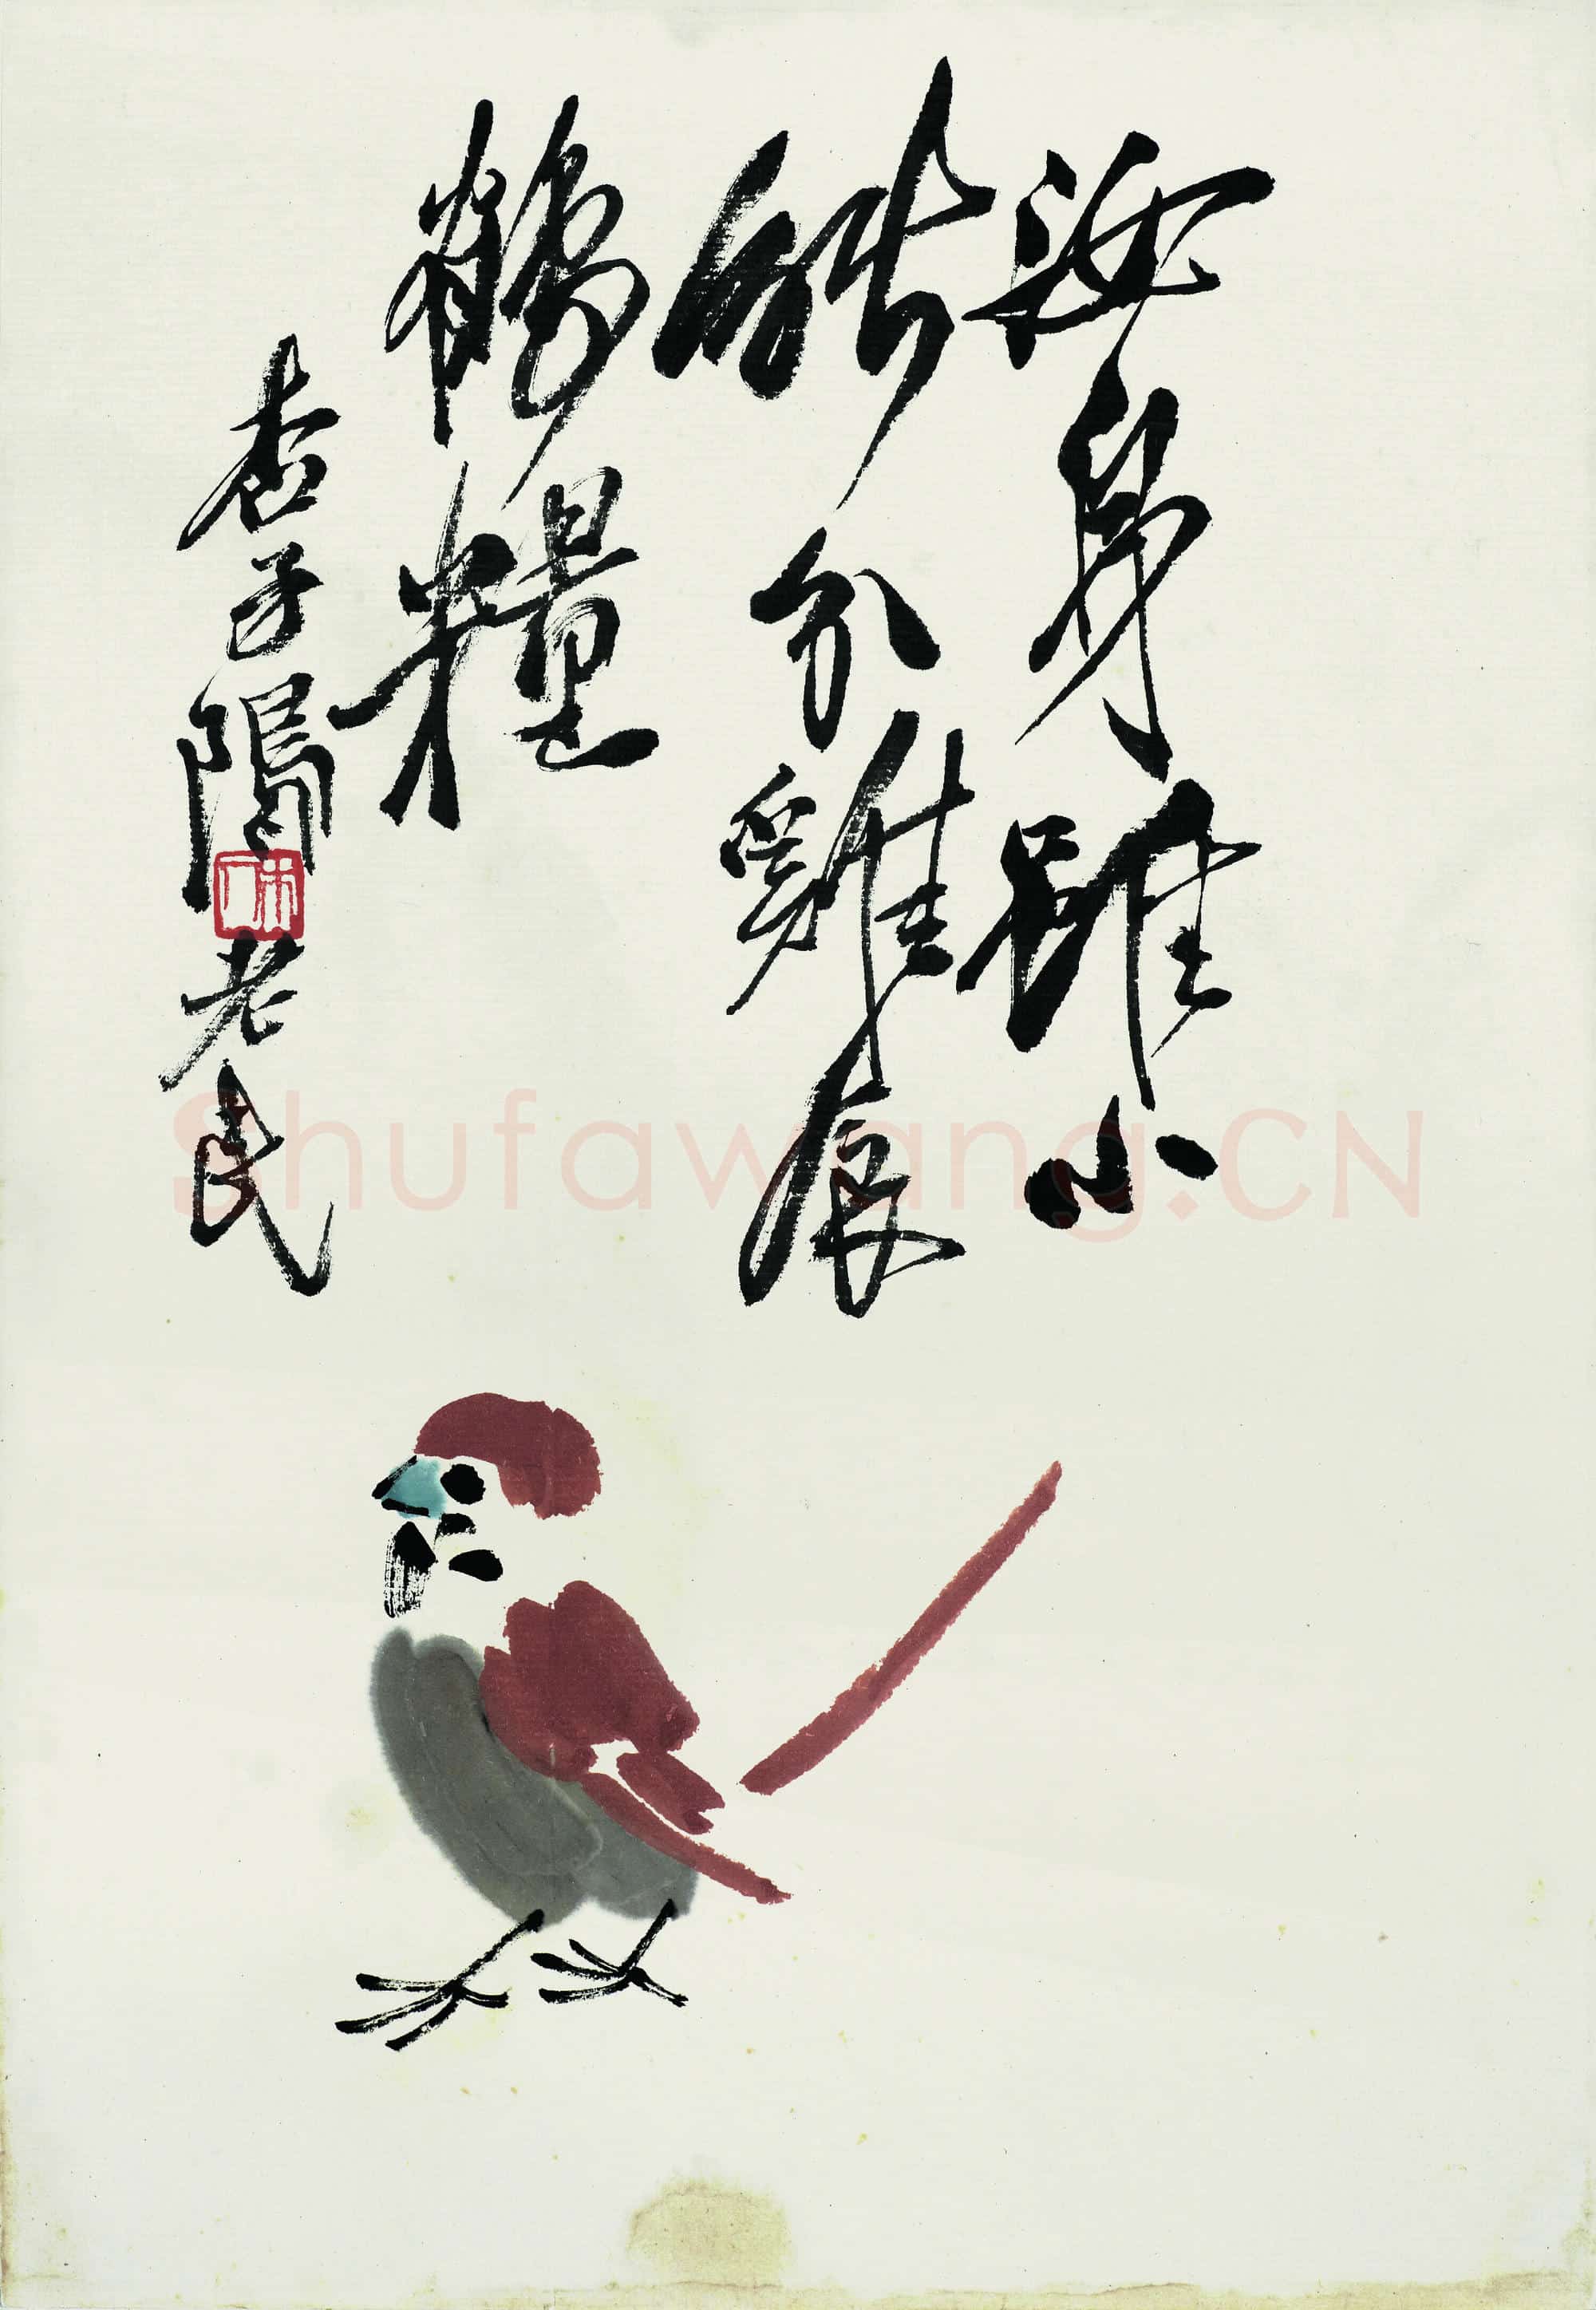 汝身雖小
能分雞食
鶴糧
杏子隖老民
木人
Shufawang.CN